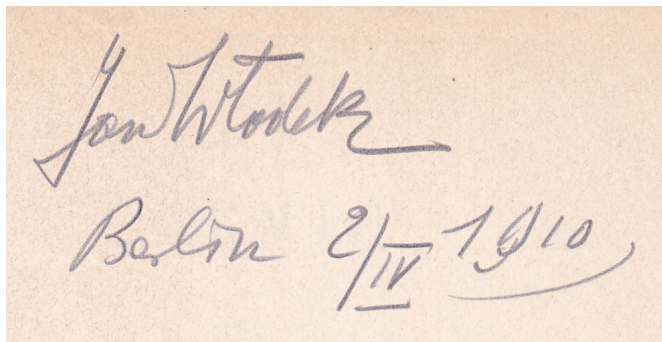 Jan Włodek
Berlin 2/IV 1910